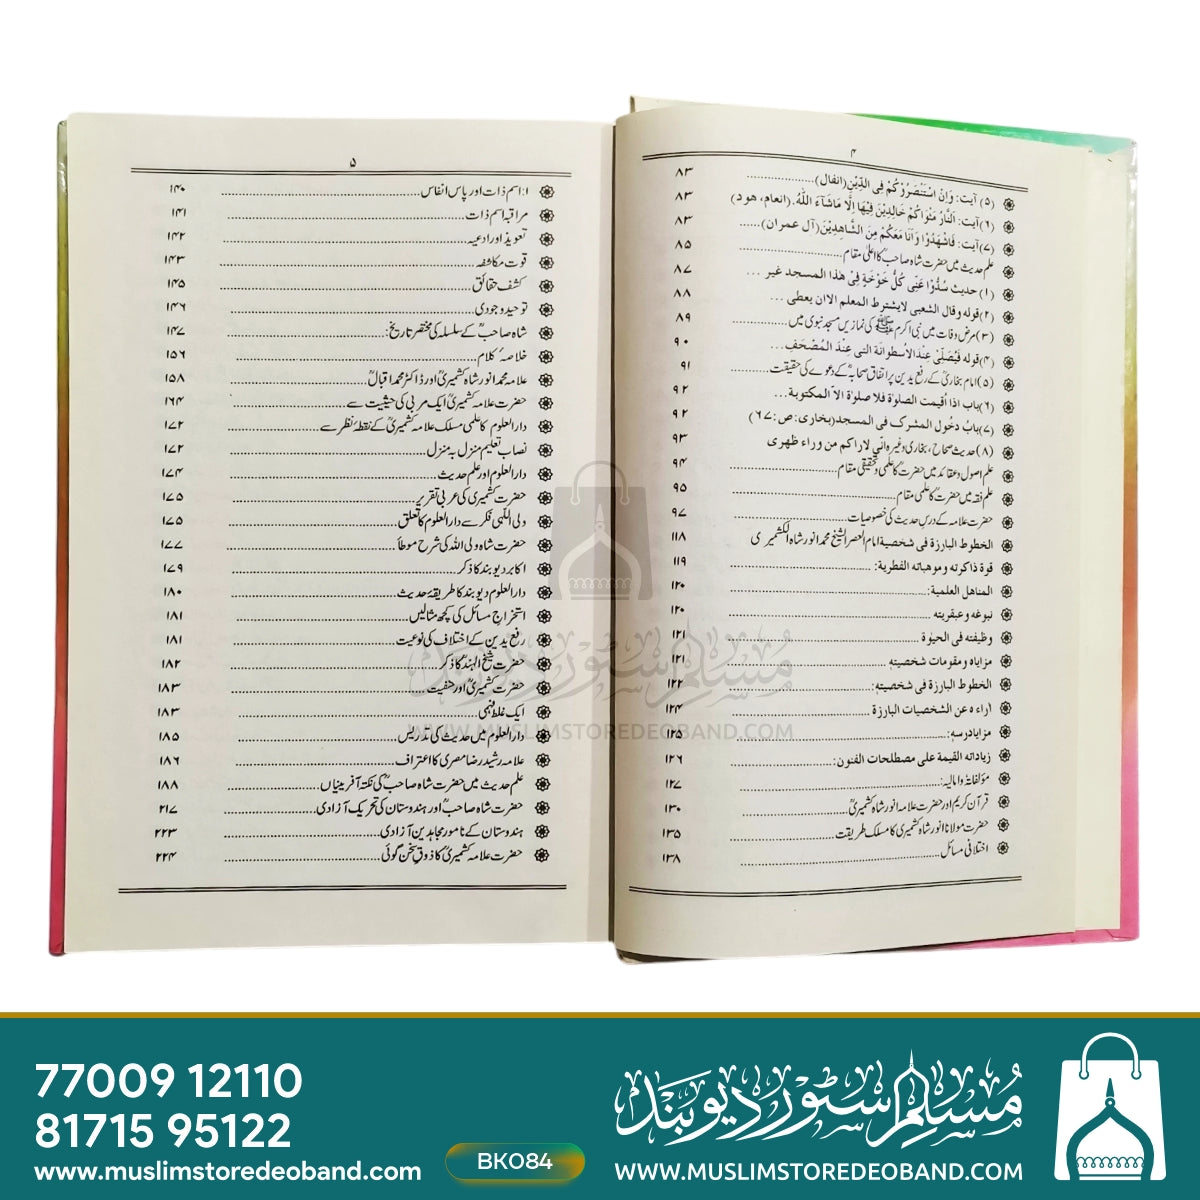 ۴
(۵) آیت: وَاِنْ اسْتَنْصَرُوْكُمْ فِی الدِّیْنِ (انفال)............ ۸۳
(۶) آیت: اَلنَّارُ مَثْوَاكُمْ خَالِدِیْنَ فِیْهَا اِلَّا مَاشَآءَ اللّٰهُ. (انعام، هود) ۸۳
(۷) آیت: فَاشْهَدُوْا وَاَنَا مَعَكُمْ مِنَ الشَّاهِدِیْنَ (آل عمران)...... ۸۳
علم حدیث میں حضرت شاہ صاحبؒ کا اعلیٰ مقام ............ ۸۵
(۱) حدیث سُدُّوْا عَنِّی كُلَّ خَوْخَةٍ فِیْ هٰذَا المسجد غیر ... ۸۷
(۲) قوله وقال الشعبی لایشترط المعلم الاان یعطی ... ۸۸
(۳) مرض وفات میں نبی اکرم ﷺ کی نمازیں مسجد نبوی میں ............ ۸۹
(۴) قوله فَیُصَلِّیْ عِنْدَ الْاُسطوانة التی عِنْدَ المُصْحَفِ... ۹۰
(۵) امام بخاریؒ کے رفع یدین پر اتفاق صحابہؓ کے دعوے کی حقیقت ............ ۹۱
(۶) باب اذا اُقیمت الصلوٰة فلا صلوٰة الّا المکتوبة... ۹۲
(۷) بابُ دخُول المشرک فی المسجد (بخاری: ص: ۶۷) ۹۲
(۸) حدیث صحاح، بخاری وغیرہ انی لاراکم من وراء ظهری ۹۳
علم اصول وعقائد میں حضرتؒ کا علمی وتحقیقی مقام ............ ۹۴
علم فقہ میں حضرتؒ کا علمی مقام ............ ۹۵
حضرت علامہ کے درس حدیث کی خصوصیات ............ ۹۷
الخطوط البارزة فی شخصیة امام العصر الشیخ محمد انور شاه الکشمیری ۱۱۸
قوة ذاکرته وموهباته الفطریة: ............ ۱۱۹
المناهل العلمیة: ............ ۱۲۰
نبوغه وعبقریته ............ ۱۲۰
وظیفته فی الحیٰوة ............ ۱۲۱
مزایاه ومقومات شخصیته ............ ۱۲۱
الخطوط البارزة فی شخصیته: ............ ۱۲۲
آراءه عن الشخصیات البارزة ............ ۱۲۴
مزایا درسه: ............ ۱۲۵
زیاداته القیمة علی مصطلحات الفنون: ............ ۱۲۶
مؤلفاتہٗ وامالیہ: ............ ۱۲۷
قرآن کریم اور حضرت علامہ انور شاہ کشمیریؒ ............ ۱۳۰
حضرت مولانا انور شاہ کشمیری کا مسلک طریقت ............ ۱۳۵
اختلافی مسائل ............ ۱۳۸
۵
۱: اسم ذات اور پاس انفاس ............ ۱۴۰
مراقبہ اسم ذات ............ ۱۴۱
تعویذ اور ادعیہ ............ ۱۴۲
قوت مکاشفہ ............ ۱۴۳
کشف حقائق ............ ۱۴۵
توحید وجودی ............ ۱۴۶
شاہ صاحبؒ کے سلسلہ کی مختصر تاریخ: ............ ۱۴۷
خلاصۂ کلام ............ ۱۵۶
علامہ محمد انور شاہ کشمیریؒ اور ڈاکٹر محمد اقبالؒ ............ ۱۵۸
حضرت علامہ کشمیریؒ ایک مربی کی حیثیت سے ............ ۱۶۴
دارالعلوم کا علمی مسلک علامہ کشمیریؒ کے نقطۂ نظر سے ............ ۱۷۲
نصاب تعلیم منزل بہ منزل ............ ۱۷۲
دارالعلوم اور علم حدیث ............ ۱۷۴
حضرت کشمیری کی عربی تقریر ............ ۱۷۵
ولی اللّٰہی فکر سے دارالعلوم کا تعلق ............ ۱۷۵
حضرت شاہ ولی اللہ کی شرح موطأ ............ ۱۷۷
اکابر دیوبند کا ذکر ............ ۱۷۹
دارالعلوم دیوبند کا طریقۂ حدیث ............ ۱۸۰
استخراج مسائل کی کچھ مثالیں ............ ۱۸۱
رفع یدین کے اختلاف کی نوعیت ............ ۱۸۱
حضرت شیخ الہندؒ کا ذکر ............ ۱۸۲
حضرت کشمیریؒ اور حنفیت ............ ۱۸۳
ایک غلط فہمی ............ ۱۸۳
دارالعلوم میں حدیث کی تدریس ............ ۱۸۵
علامہ رشید رضا مصری کا اعتراف ............ ۱۸۶
علم حدیث میں حضرت شاہ صاحبؒ کی نکتہ آفرینیاں ............ ۱۸۸
حضرت شاہ صاحبؒ اور ہندوستان کی تحریک آزادی ............ ۲۱۷
ہندوستان کے نامور مجاہدین آزادی ............ ۲۲۳
حضرت علامہ کشمیریؒ کا ذوقِ سخن گوئی ............ ۲۲۴
مسلم سٹور دیوبند
WWW.MUSLIMSTOREDEOBAND.COM
77009 12110
81715 95122
www.muslimstoredeoband.com
BK084
مسلم سٹور دیوبند
WWW.MUSLIMSTOREDEOBAND.COM